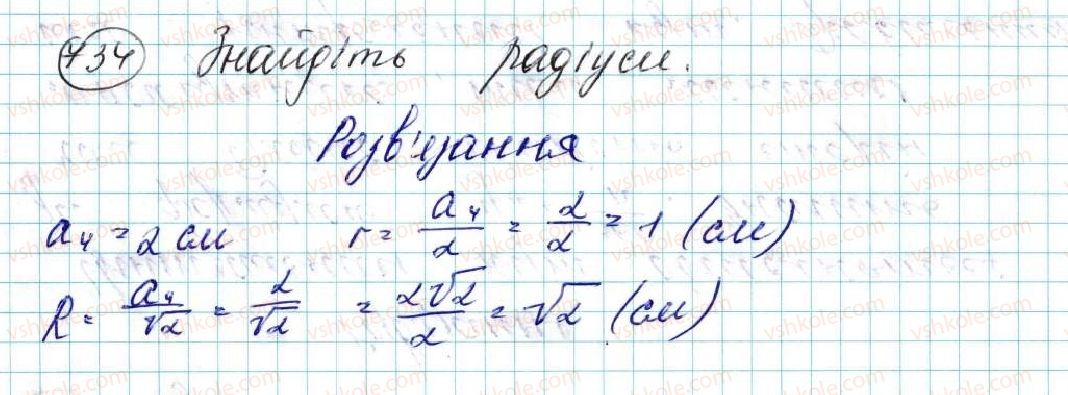 734 Знайдіть радіуси.
Розв'язання
a₄ = 2 см r = a₄/2 = 2/2 = 1 (см)
R = a₄/√2 = 2/√2 = 2√2/2 = √2 (см)